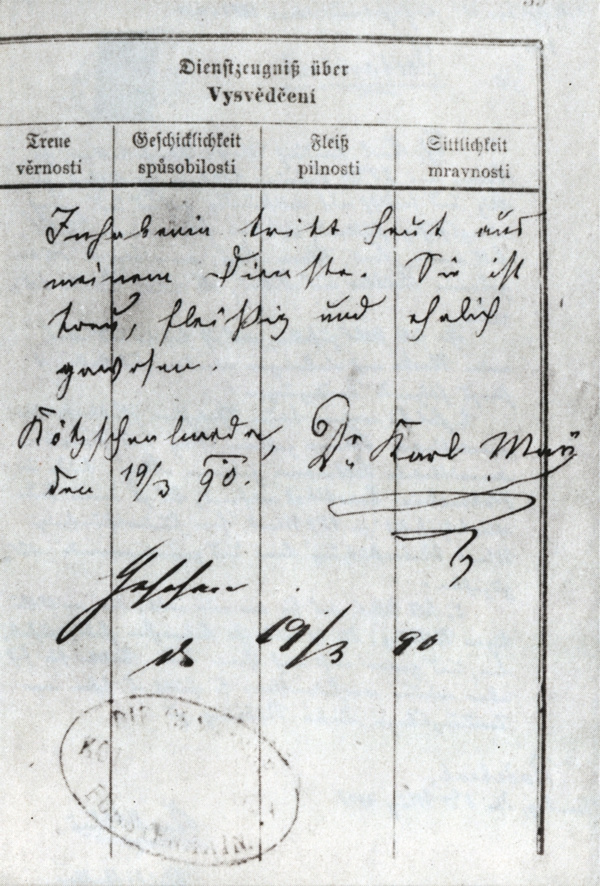 Dienstzeugniß über
Vysvědčení
Treue Geschicklichkeit Fleiß Sittlichkeit
věrnosti spůsobilosti pilnosti mravnosti
Inhaberin tritt heut aus
meinem Dienste. Sie ist
treu, fleißig und ehrlich
gewesen.
Kötzschenbroda, Dr. Karl May
den 19/3 90.
Gesehen
d. 19/3 90